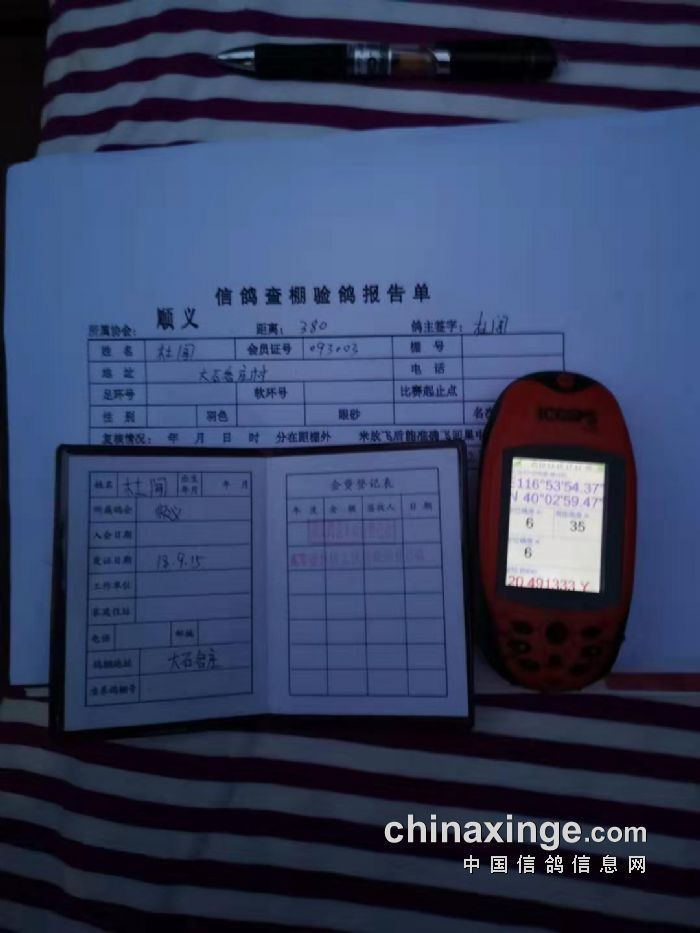 信鸽查棚验鸽报告单
所属协会: 顺义 距离: 380 鸽主签字: 杜闯
姓名 杜闯 会员证号 093003 棚号
地址 大石各庄村 电话
足环号 软环号 比赛起止点
性别 羽色 眼砂
复核情况: 年 月 日 时 分在距棚外 米放飞后能准确飞回巢中
姓名 杜闯 出生年月 年 月
所属鸽会 顺义
入会日期
发证日期 18.9.15
工作单位
家庭住址
电话 邮编
鸽棚地址 大石各庄
会费登记表
年度 金额 签收人 日期
E116°53'54.37"
N 40°02'59.47"
6 35
6
20.491333 Y
chinaxinge.com
中国信鸽信息网